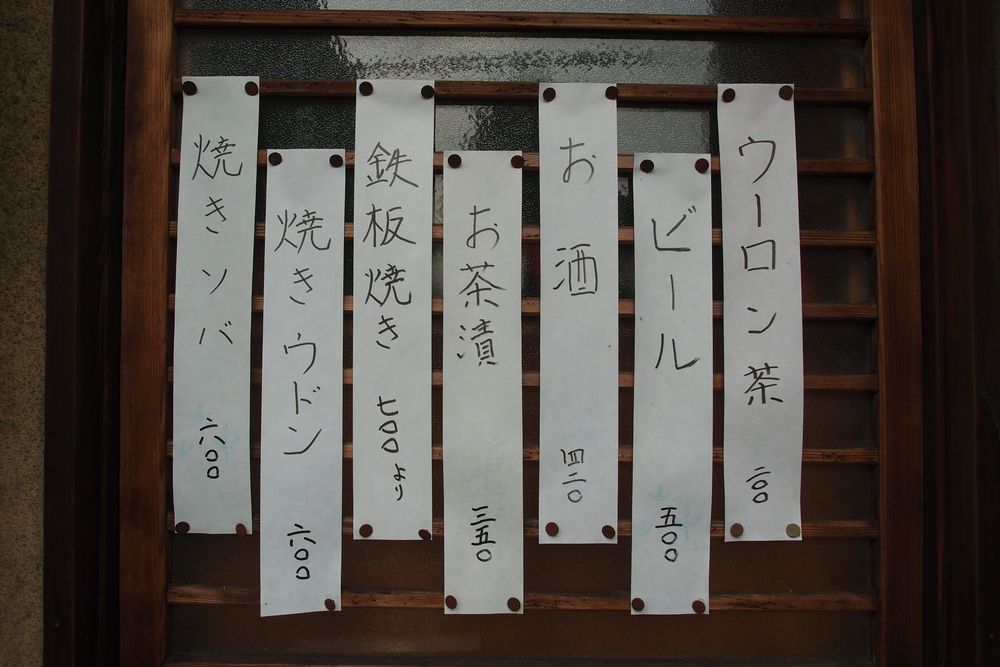 ウーロン茶 二〇〇
ビール 五〇〇
お酒 四二〇
お茶漬 三五〇
鉄板焼き 七〇〇より
焼きウドン 六〇〇
焼きソバ 六〇〇